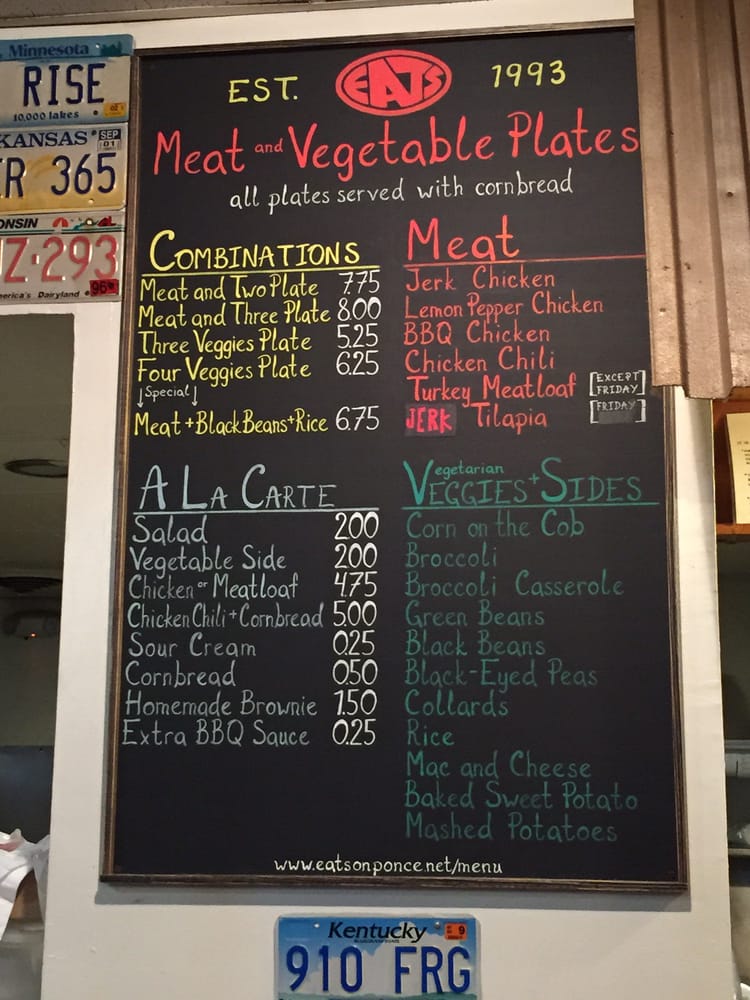 Minnesota
RISE
10,000 lakes
02
KANSAS
SEP
01
R 365
ONSIN
Z-293
erica's Dairyland
96
EST.
EATS
1993
Meat and Vegetable Plates
all plates served with cornbread
COMBINATIONS
Meat and Two Plate 7.75
Meat and Three Plate 8.00
Three Veggies Plate 5.25
Four Veggies Plate 6.25
↓Special↓
Meat+Black Beans+Rice 6.75
Meat
Jerk Chicken
Lemon Pepper Chicken
BBQ Chicken
Chicken Chili
Turkey Meatloaf [EXCEPT FRIDAY]
JERK Tilapia [FRIDAY]
A LA CARTE
Salad 2.00
Vegetable Side 2.00
Chicken or Meatloaf 4.75
Chicken Chili+Cornbread 5.00
Sour Cream 0.25
Cornbread 0.50
Homemade Brownie 1.50
Extra BBQ Sauce 0.25
Vegetarian
VEGGIES+SIDES
Corn on the Cob
Broccoli
Broccoli Casserole
Green Beans
Black Beans
Black-Eyed Peas
Collards
Rice
Mac and Cheese
Baked Sweet Potato
Mashed Potatoes
www.eatsonponce.net/menu
Kentucky
9
910 FRG